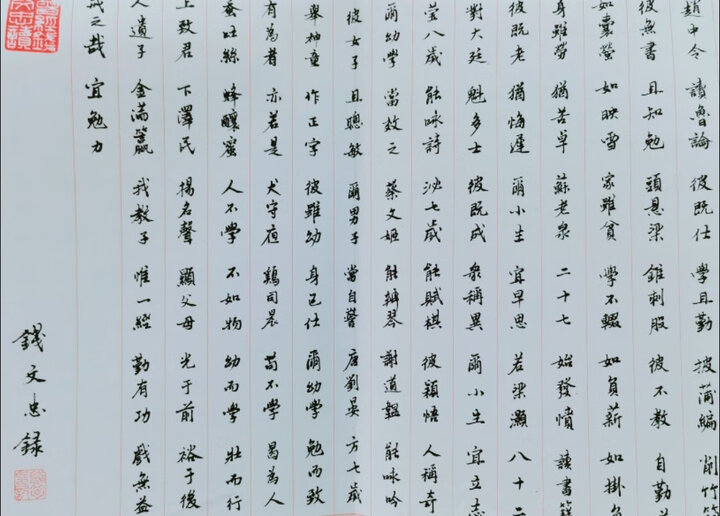 趙中令 讀魯論 彼既仕 學且勤 披蒲編 削竹
彼無書 且知勉 頭懸梁 錐刺股 彼不教 自勤
如囊螢 如映雪 家雖貧 學不輟 如負薪 如掛
身雖勞 猶苦卓 蘇老泉 二十七 始發憤 讀書籍
彼既老 猶悔遲 爾小生 宜早思 若梁灝 八十二
對大廷 魁多士 彼既成 衆稱異 爾小生 宜立志
瑩八歲 能咏詩 泌七歲 能賦棋 彼穎悟 人稱奇
爾幼學 當效之 蔡文姬 能辨琴 謝道韞 能咏吟
彼女子 且聰敏 爾男子 當自警 唐劉晏 方七歲
舉神童 作正字 彼雖幼 身已仕 爾幼學 勉而致
有為者 亦若是 犬守夜 鷄司晨 苟不學 曷為人
蠶吐絲 蜂釀蜜 人不學 不如物 幼而學 壯而行
上致君 下澤民 揚名聲 顯父母 光于前 裕于後
人遺子 金滿籯 我教子 惟一經 勤有功 戲無益
戒之哉 宜勉力
錢文忠錄